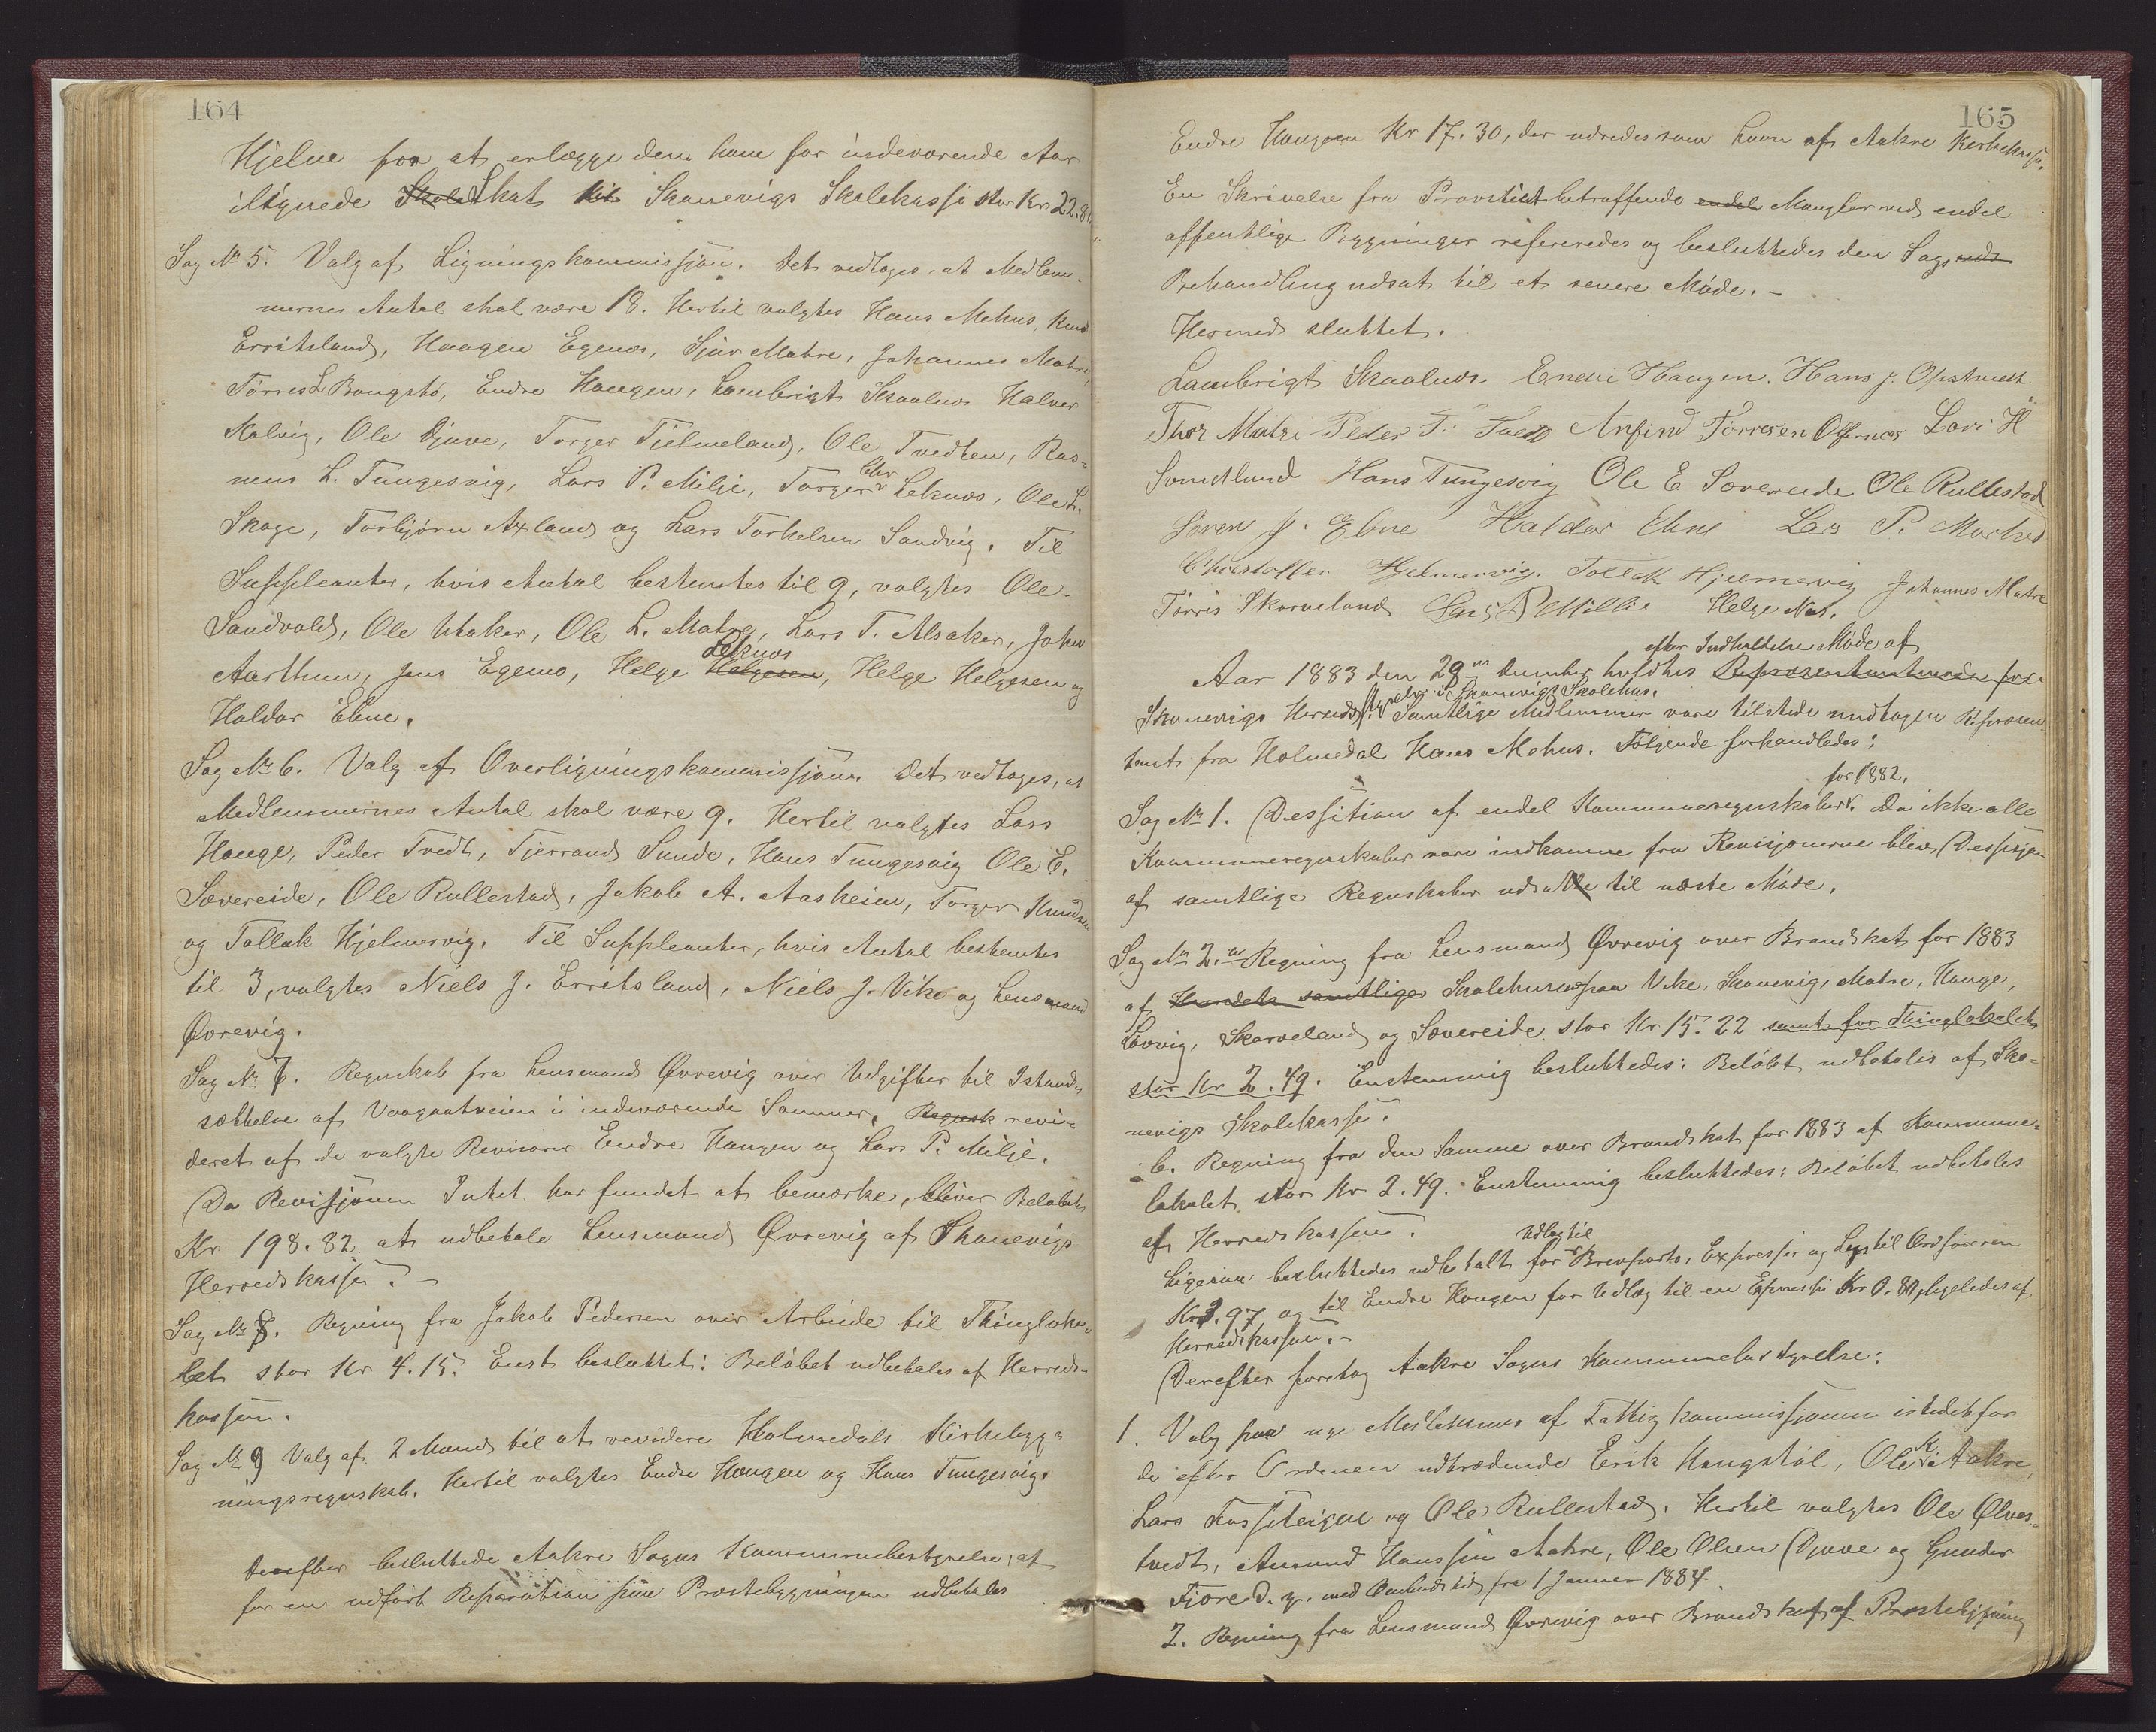 164
Hjelne for at erlægge den ham for indeværende Aar
ilignede Skole Skat til Skanevigs Skolekasse stor Kr 22.80
Sag No 5. Valg af Ligningskommissjon. Det vedtages, at Medlem-
mernes Antal skal være 18. Hertil valgtes Hans Mehus, Knud
Erritsland, Haagen Egenæs, Sjur Matre, Johannes Matre,
Tørres L Bangstø, Endre Haugen, Lambrigt Skaalnæs Halvor
Kalvig, Ole Djuve, Torger Tjelmeland, Ole Tvedten, Ras-
mus L. Tungesvig, Lars P. Milje, Torger Chr Leknæs, Ole L.
Skage, Torbjørn Axland og Lars Torkelsen Sandvig. Til
Suppleanter, hvis Antal bestemtes til 9, valgtes Ole
Sandvold, Ole Utaker, Ole L. Matre, Lars T. Alsaker, John
Leknæs
Aarthun, Jens Egenæs, Helge Helgesen, Helge Helgesen og
Haldor Ebne.
Sag No 6. Valg af Overligningskommissjon. Det vedtages, at
Medlemmernes Antal skal være 9. Hertil valgtes Lars
Hauge, Peder Tvedt, Tjerrand Sunde, Hans Tungesvig Ole E.
Sævereide, Ole Rullestad, Jakob A. Aasheim, Torger Knudsen
og Tollak Hjelmervig. Til Suppleanter, hvis Antal bestemtes
til 3, valgtes Niels J. Erritsland, Niels J. Vike og Lensmand
Øvrevig.
Sag No 7. Regnskab fra Lensmand Øvrevig over Udgifter til Istand-
sættelse af Vaagaatveien i indeværende Sommer, Regnsk revi-
deret af de valgte Revisorer Endre Haugen og Lars P. Milje.
Da Revisjonen Intet har fundet at bemærke, bliver Beløbet
Kr 198.82 at udbetale Lensmand Øvrevig af Skanevigs
Herredskasse. -
Sag No 8. Regning fra Jakob Pedersen over Arbeide til Thingloka-
let stor Kr 4.15. Enst besluttet: Beløbet udbetales af Herreds-
kassen.
Sag No 9 Valg af 2 Mand til at revidere Holmedals Kirkebyg-
ningsregnskab. Hertil valgtes Endre Haugen og Hans Tungesvig.
Derefter besluttede Aakre Sogns Kommunebestyrelse, at
for en udført Reparation paa Præstebygningen udbetales
165
Endre Haugen Kr 17.30, der udredes som Laan af Aakre Kirkekasse.
En Skrivelse fra Provstiet betræffende endel Mangler ved endel
offentlige Bygninger refereredes og besluttedes den Sags uds
Behandling udsat til et senere Møde. -
Hermed sluttet.
Lambrigt Skaalnæs Endre Haugen. Hans J. Opstvedt
Thor Matre Peder T. Tvedt Anfind Tørresen Ølfernæs Lars H
Svendlund Hans Tungesvig Ole E Sævereide Ole Rullestad
Søren J. Ebne Haldor Ebne Lars P. Marked
Christoffer Hjelmervig. Tollak Hjelmervig Johannes Matre
Tørris Skarveland Lars P Millie Helge Næs.
efter Indkaldelse Møde af
Aar 1883 den 29de December holdtes Repræsentantmøde for
Skanevigs Herredsstyrelse i Skanevigs Skolehus. Samtlige Medlemmer vare tilstede undtagen Repræsen-
tant fra Holmedal Hans Mehus. Følgende forhandledes:
for 1882.
Sag No 1. Dessition af endel Kommuneregnskaber. Da ikke alle
Kommuneregnskaber vare indkomne fra Revisjonerne blev Dessisjon
af samtlige Regnskaber udsatte til næste Møde.
Sag No 2. a Regning fra Lensmand Øvrevig over Brandskat for 1883
af Herredets samtlige Skolehuse paa Vike, Skanevig, Matre, Hauge,
Løvvig, Skarveland og Sævereide stor Kr 15.22 samt for Thinglokalet
stor Kr 2.49. Enstemmig besluttedes: Beløbet udbetales af Ska-
nevigs Skolekasse.
b. Regning fra den Samme over Brandskat for 1883 af Kommune-
lokalet stor Kr 2.49. Enstemmig besluttedes: Beløbet udbetales
af Herredskassen.
Udlæg til
Ligesaa besluttedes udbetalt for Brevporto, Expresser og Lys til Ordføreren
Kr 3.97 og til Endre Haugen for Udlæg til en Expresse Kr 0.80, ligeledes af
Herredskassen. -
Derefter foretog Aakre Sogns Kommunebestyrelse:
1. Valg paa nye Medlemmer af Fattigkommissjonen istedetfor
de efter Ordenen udtrædende Erik Haugstøl, Ole K. Aakre,
Lars Fossteigen og Ole Rullestad. Hertil valgtes Ole Ølves-
tvedt, Amund Hanssen Aakre, Ole Olsen Djuve og Gunder
Fjore d. y. med Ombudstid fra 1 Januar 1884.
2. Regning fra Lensmand Øvrevig over Brandskat af Præstebygning